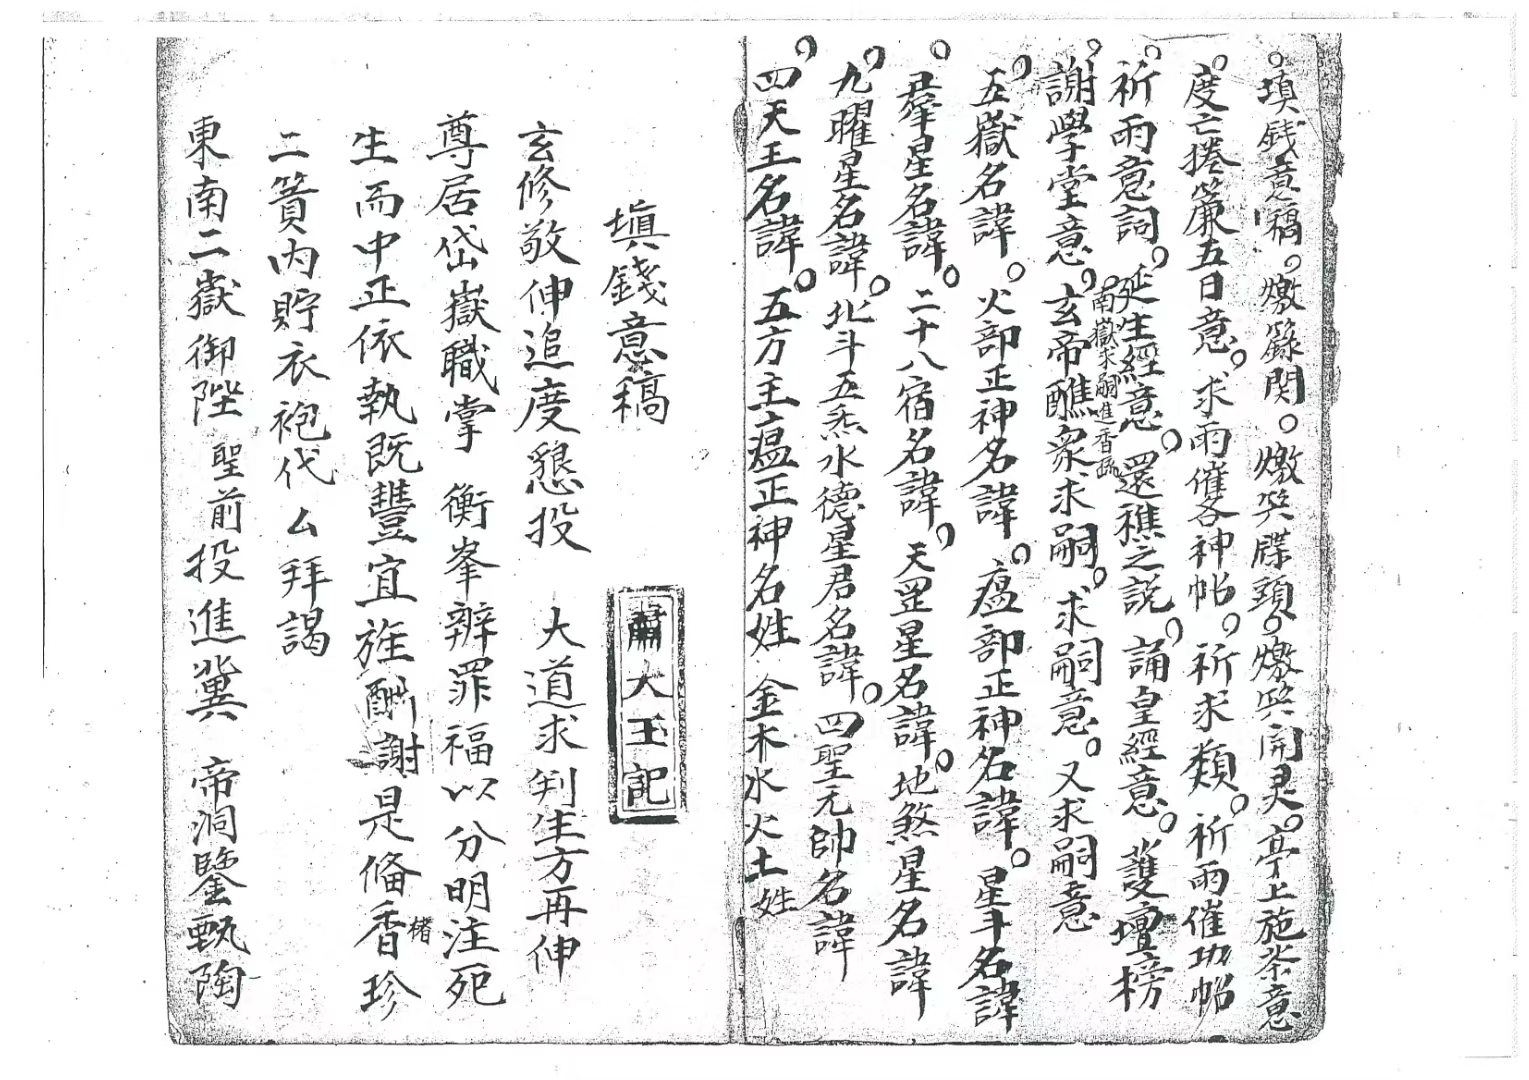 填錢意稿。繳籙関。繳奠牒頭。繳奠開灵。亭上施茶意
度亡捲簾五日意。求雨催各神帖。祈求類。祈雨催功帖
祈雨意詞。延生經意。還醮之説。誦皇經意。護壇榜
謝學堂意。玄帝醮衆求嗣。求嗣意。又求嗣意
南嶽求嗣進香疏
五嶽名諱。火部正神名諱。瘟部正神名諱。星斗名諱
羣星名諱。二十八宿名諱。天罡星名諱。地煞星名諱
九曜星名諱。北斗五炁水德星君名諱。四聖元帥名諱
四天王名諱。五方主瘟正神名姓 金木水火土姓
填錢意稿
大王記
玄修敬伸追度懇投 大道求判生方再伸
尊居岱嶽職掌 衡峯辨罪福以分明注死
生而中正依執既豐宜旌酬謝是俻香楮珍
二簣内貯衣袍代厶拜謁
東南二嶽御陛 聖前投進冀 帝洞鑒甄陶